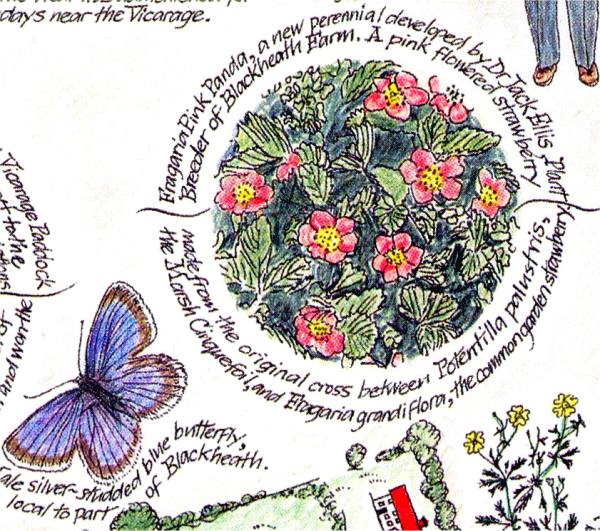 days near the Vicarage.
Fragaria Pink Panda, a new perennial developed by Dr. Jack Ellis, Plant
Breeder of Blackheath Farm. A pink flowered strawberry
made from the original cross between Potentilla palustris,
the Marsh Cinquefoil, and Fragaria grandiflora, the common garden strawberry
Vicarage Paddock
to the
of
and won the
male silver-studded blue butterfly,
local to part of Blackheath.